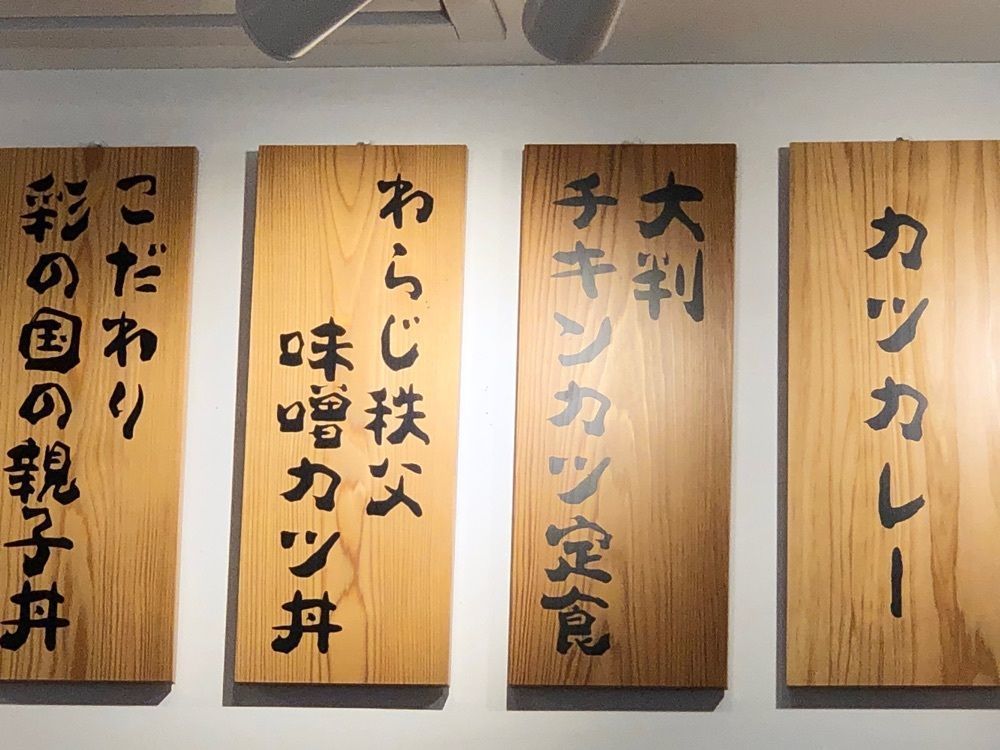 カツカレー
大判
チキンカツ定食
わらじ秩父
味噌カツ丼
こだわり
彩の国の親子丼